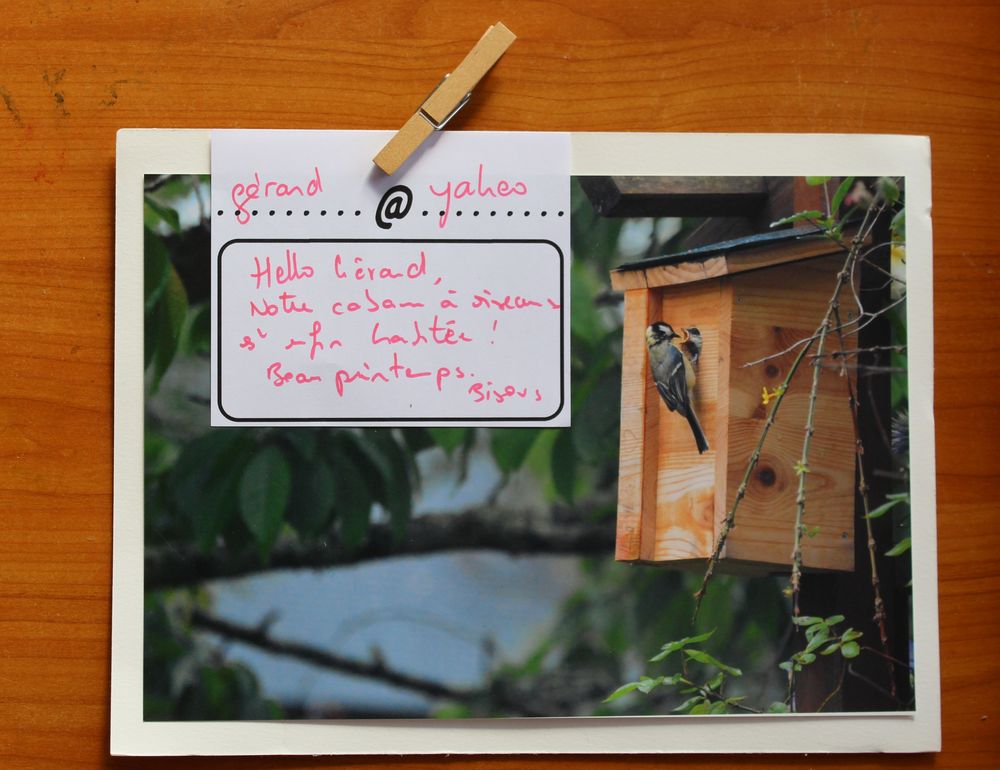 gérard @ yahoo
Hello Gérard,
Notre cabane à oiseaux
est enfin habitée !
Beau printemps.
Bisous